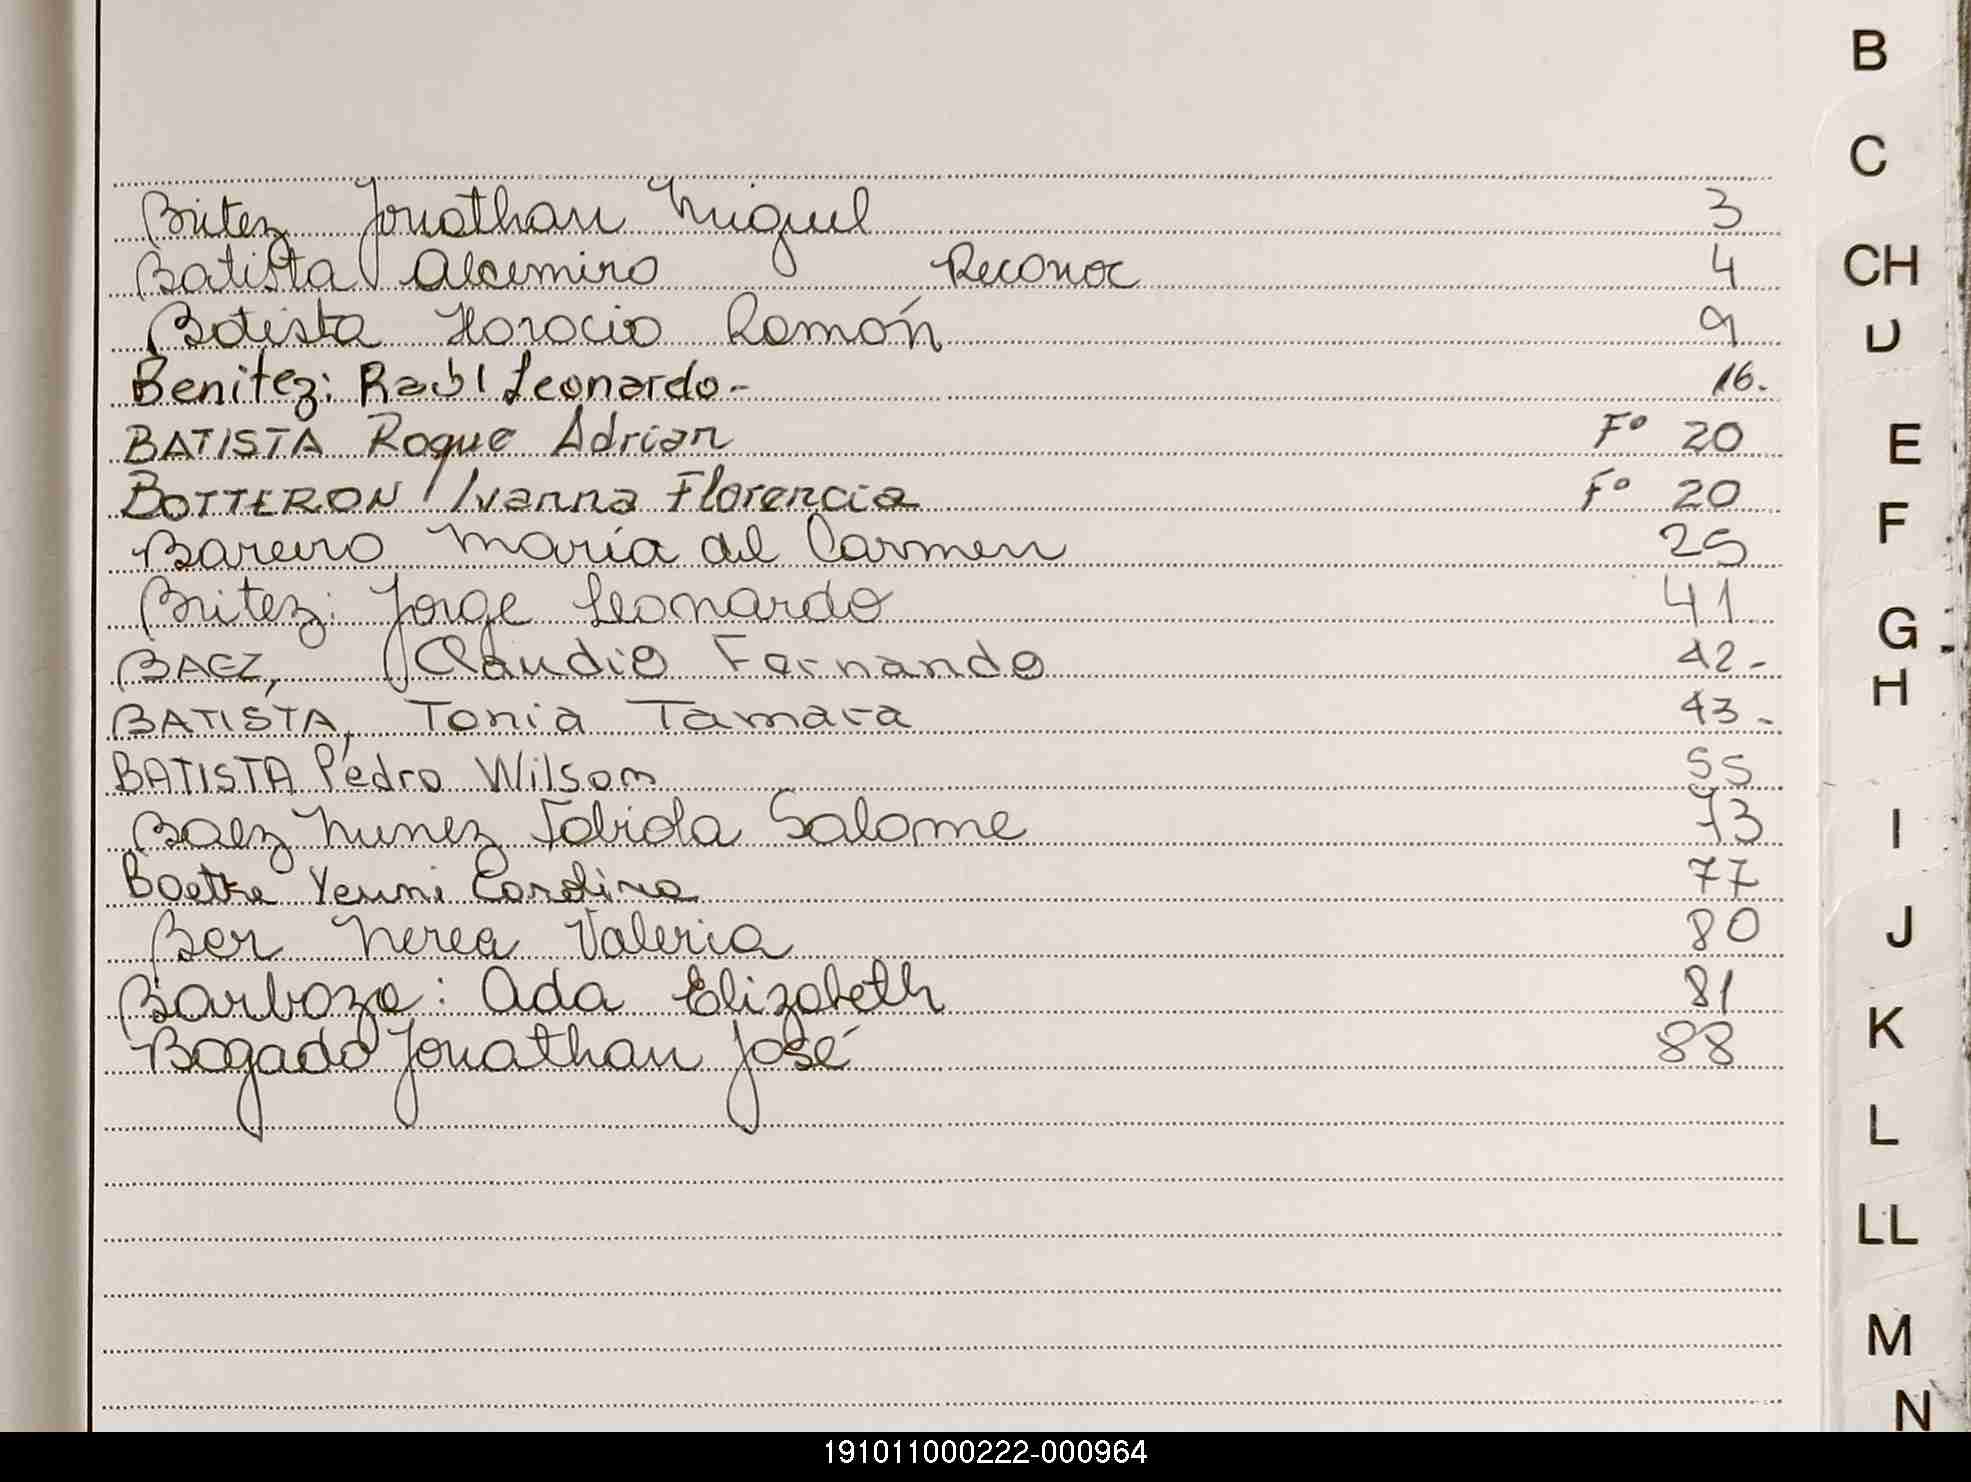 Britez Jonathan Miguel 3
Batista Alcemiro Reconoc 4
Batista Horacio Ramón 9
Benitez: Raúl Leonardo- 16.
BATISTA Roque Adrian Fº 20
BOTTERON Ivanna Florencia Fº 20
Bareiro María del Carmen 25
Britez: Jorge Leonardo 41
BAEZ, Claudio Fernando 42-
BATISTA, Tonia Tamara 43-
BATISTA Pedro Wilson 55
Baez Nunez Fabiola Salome 73
Boetke Yenni Carolina 77
Ber Nerea Valeria 80
Barboza: Ada Elizabeth 81
Bogado Jonathan José 88
B
C
CH
D
E
F
G
H
I
J
K
L
LL
M
N
191011000222-000964